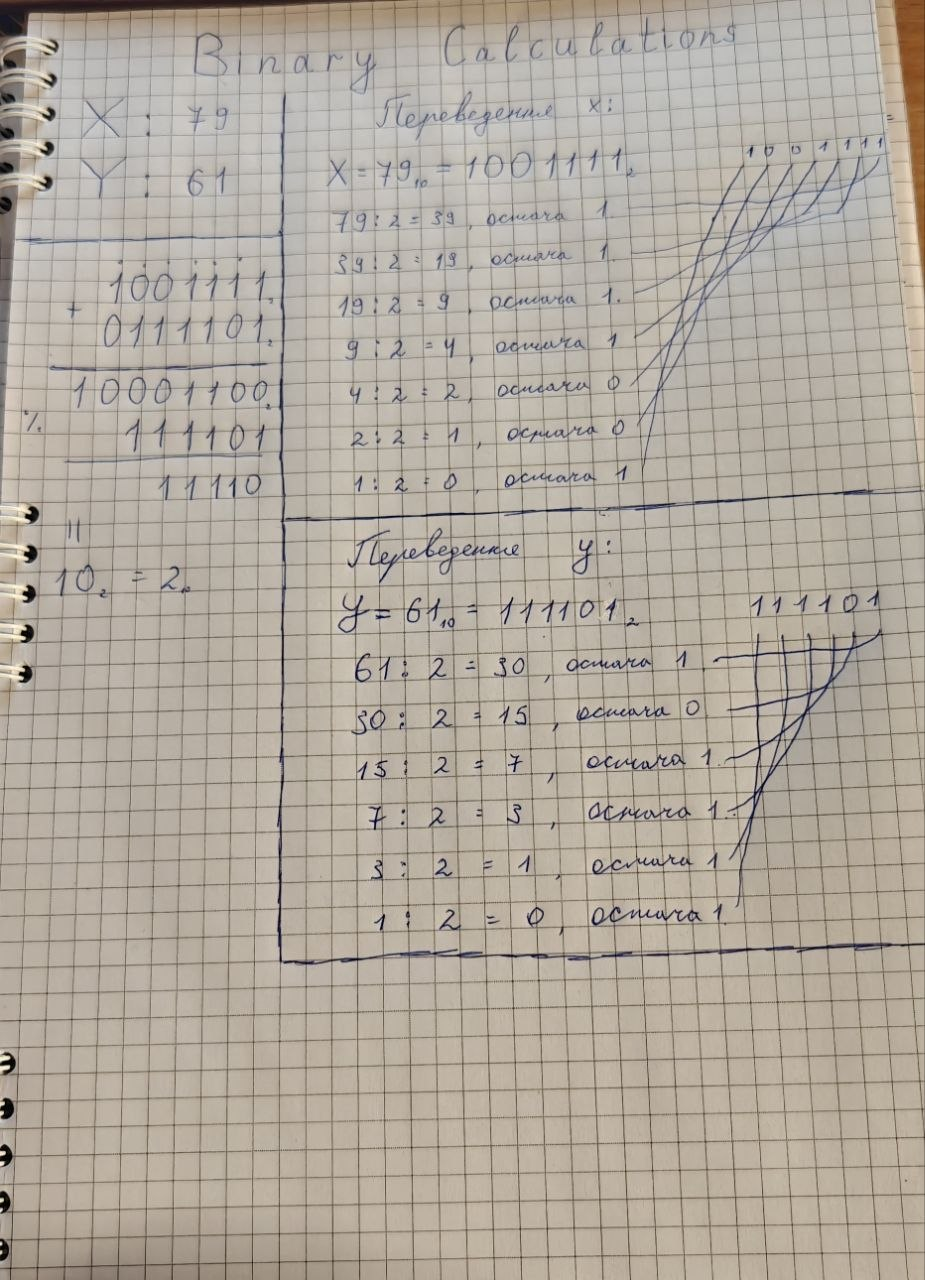 Binary Calculations
X : 79
Y : 61
+ 1001111₂
0111101₂
10001100₂
%
111101
11110
||
10₂ = 2₁₀
Переведення x:
1001111
X = 79₁₀ = 1001111₂
79 : 2 = 39, остача 1.
39 : 2 = 19, остача 1.
19 : 2 = 9, остача 1.
9 : 2 = 4, остача 1
4 : 2 = 2, остача 0
2 : 2 = 1, остача 0
1 : 2 = 0, остача 1
Переведення y:
y = 61₁₀ = 111101₂ 111101
61 : 2 = 30, остача 1
30 : 2 = 15, остача 0
15 : 2 = 7, остача 1.
7 : 2 = 3, остача 1.
3 : 2 = 1, остача 1
1 : 2 = 0, остача 1.